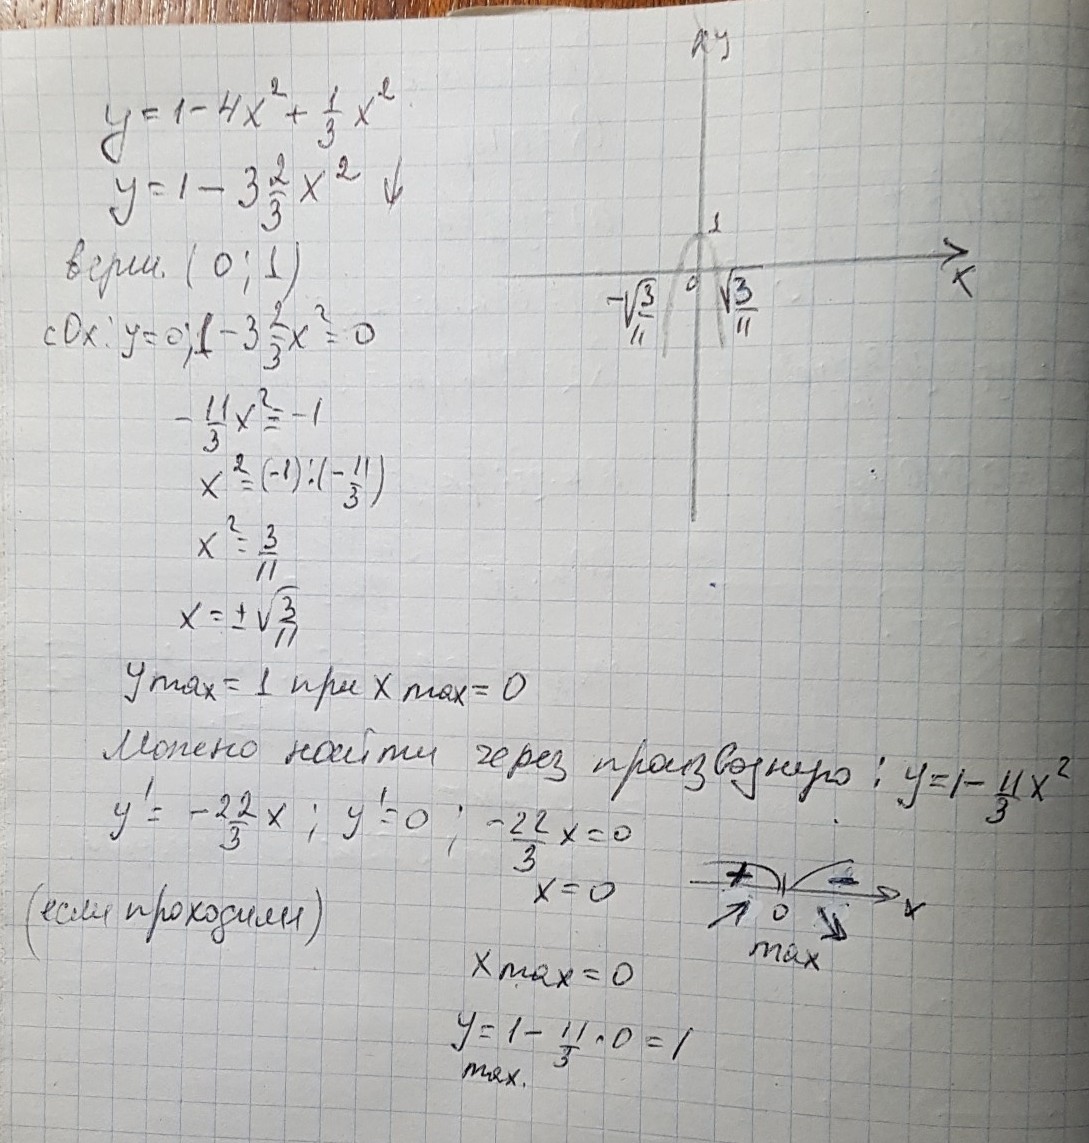 y = 1 - 4x² + 1/3 x²
y = 1 - 3 2/3 x² ↓
верш. (0; 1)
с Ox: y = 0; 1 - 3 2/3 x² = 0
- 11/3 x² = -1
x² = (-1) : (- 11/3)
x² = 3/11
x = ± √3/11
y max = 1 при x max = 0
Можно найти через производную: y = 1 - 11/3 x²
y' = - 22/3 x ; y' = 0 ; - 22/3 x = 0
x = 0
(если проходили)
x max = 0
y max. = 1 - 11/3 · 0 = 1
y
1
0
x
-√3/11
√3/11
+ -
0 x
max